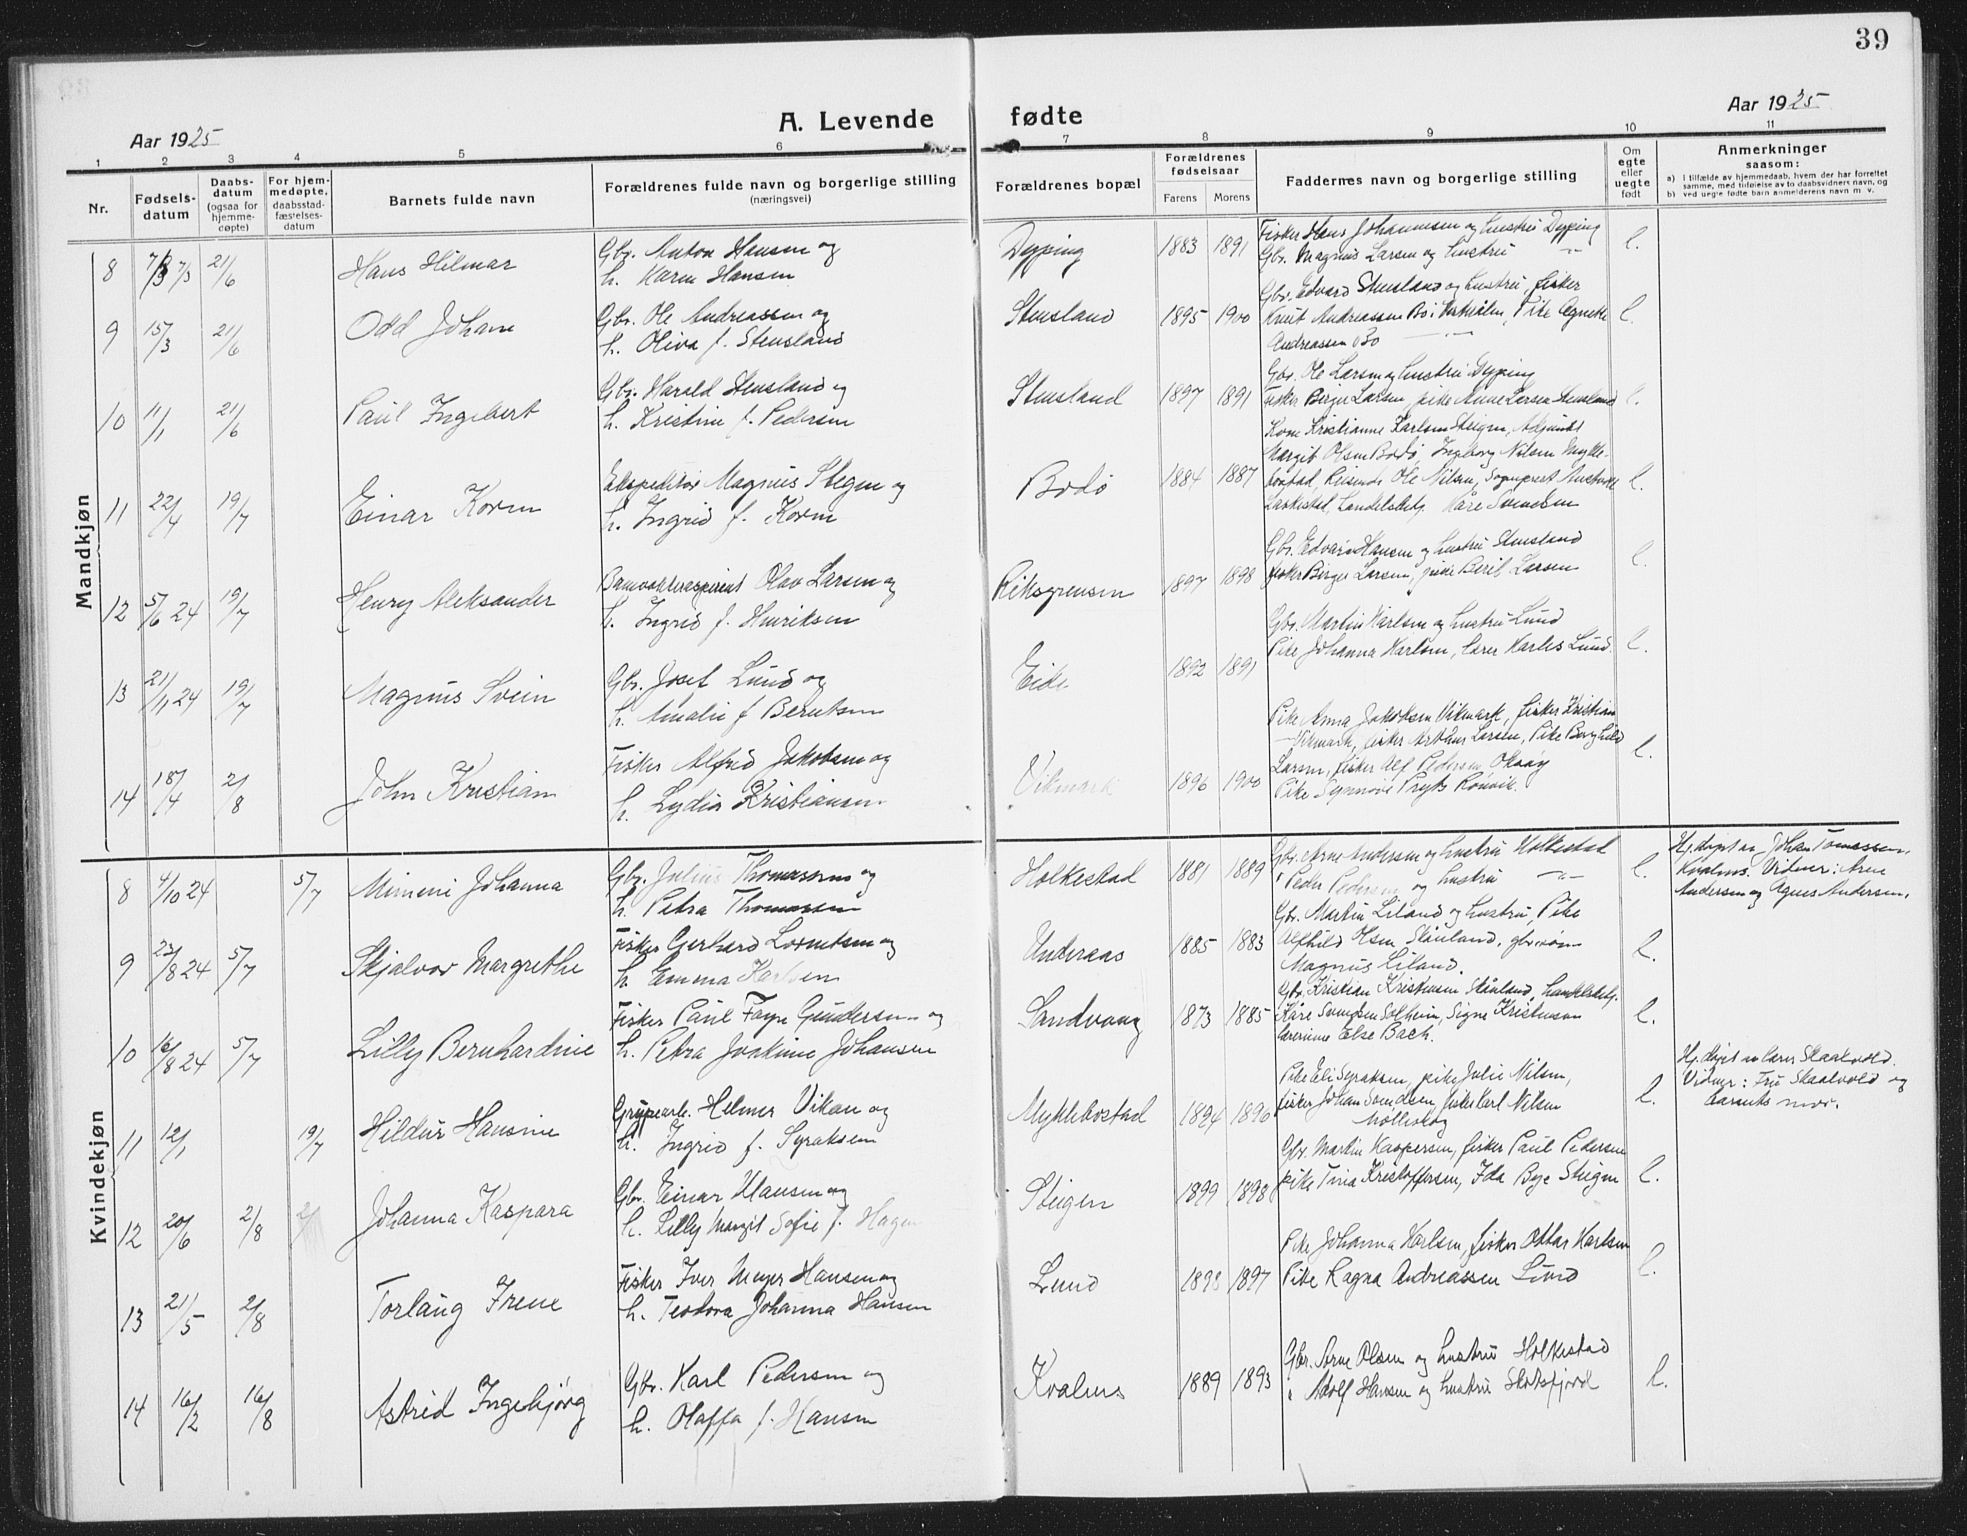 39
Aar 1925
A. Levende
fødte
Aar 1925
1 2 3 4 5 6 7 8 9 10 11
Nr.
Fødsels-
datum
Daabs-
datum
(ogsaa for
hjemme-
døpte)
For hjem-
medøpte,
daabsstad-
fæstelses-
datum
Barnets fulde navn
Forældrenes fulde navn og borgerlige stilling
(næringsvei)
Forældrenes bopæl
Forældrenes
fødselsaar
Farens Morens
Faddernes navn og borgerlige stilling
Om
egte
eller
uegte
født
Anmerkninger
saasom:
a) I tilfælde av hjemmedaab, hvem der har forrettet
samme, med tilføielse av to daabsvidners navn, og
b) ved uegte fødte barn anmelderens navn m. v.
Mandkjøn
8 7/3 21/6 Hans Hilmar
Gbr. Anton Hansen og
h. Karen Hansen
Dyping 1883 1891
Fisker Hans Johannesen og hustru Dyping
Gbr. Magnus Larsen og hustru -"-
l.
9 15/3 21/6 Odd Johan
Gbr. Ole Andreassen og
h. Oliva f. Stensland
Stensland 1895 1900
Gbr. Edvard Stensland og hustru, fisker
Knut Andreassen Bø i Vesterålen, Pike Agnethe
Andreassen Bø -"-
l.
10 11/1 21/6 Paul Ingebert
Gbr. Harald Stensland og
h. Kristine f. Pedersen
Stensland 1897 1891
Gbr. Ole Larsen og hustru Dyping
Fisker Birger Larsen, pike Anne Larsen Stensland
l.
11 22/4 19/7 Einar Koren
Ekspeditør Magnus Stegen og
h. Ingrid f. Koren
Bodø 1884 1887
Kone Kristianne Karlsen Steigen, Adjunkt
Margit Olsen Bodø, Ingeborg Nilsen Mykle-
bostad, Reisende Ole Nilsen, Sogneprest
Laskestad, Handelsbetj. Kåre Svendsen
l.
12 5/6 24 19/7 Henry Aleksander
Olav Larsen og
h. Ingrid f. Henriksen
Riksgrensen 1897 1898
Gbr. Edvard Hansen og hustru Stensland
fisker Birger Larsen, pike Berit Larsen
l.
13 21/11 24 19/7 Magnus Svein
Gbr. Josef Lund og
h. Amalie f. Berntsen
Eide 1892 1891
Gbr. Martin Karlsen og hustru Lund
Pike Johanna Karlsen, lærer Karles Lund.
l.
14 18/4 2/8 John Kristian
Fisker Alfred Jakobsen og
h. Lydia Kristiansen
Vikmark 1896 1900
Pike Anna Jakobsen Vikmark, fisker Kristian
Vikmark, fisker Arthur Larsen, Pike Borghild
Larsen, fisker Alf Pedersen
Pike Synnøve Pryts Rønvik.
l.
Kvindekjøn
8 4/10 24 5/7 Mimmi Johanna
Gbr. Julius Thomassen og
h. Petra Thomassen
Holkestad 1881 1889
Gbr. Arne Andersen og hustru Holkestad
" Peder Pedersen og hustru -"-
l.
Hj.døpt av Johan Tomassen,
Kvalnes. Vidner: Arne
Andersen og Agnes Andersen.
9 23/8 24 5/7 Skjalvor Margrethe
Fisker Gerhard Lorentsen og
h. Emma Karlsen
Underaas 1885 1883
Gbr. Martin Liland og hustru, Pike
Alfhild Olsen Skånland, gbr.søn
Magnus Liland.
l.
10 16/8 24 5/7 Lilly Bernhardine
Fisker Paul Faye Gundersen og
h. Petra Joakime Johansen
Sandvaag 1873 1885
Gbr. Kristian Kristensen Skånland, handelsbetj.
Kåre Svendsen Solheim, Signe Kristensen
lærerinne Else Bach.
l.
11 12/1 19/7 Hildur Hansine
Helmer Vikan og
h. Ingrid f. Syraksen
Myklebostad 1894 1890
Pike Eli Syraksen, pike Julie Nilsen,
fisker Johan Svendsen, fisker Karl Nilsen
l.
Hj.døpt av lærer Skaalvold.
Vidner: Fru Skaalvold og
barnets mor.
12 20/6 2/8 Johanna Kaspara
Gbr. Einar Hansen og
h. Lilly Margit Sofie f. Hagen
Steigen 1899 1898
Gbr. Martin Kaspersen, fisker Paul Pedersen
pike Tina Kristoffersen, Ida Bye Steigen
l.
13 21/5 2/8 Torlaug Irene
Fisker Iver Meyer Hansen og
h. Teodora Johanna Hansen
Lund 1893 1897
Pike Johanna Karlsen, fisker Ottar Karlsen
Pike Ragna Andreassen Lund
l.
14 16/2 16/8 Astrid Ingebjørg
Gbr. Karl Pedersen og
h. Olaffa f. Hansen
Kvalnes 1889 1893
Gbr. Arne Olsen og hustru Holkestad
" Adolf Hansen og hustru Skotsfjord
l.